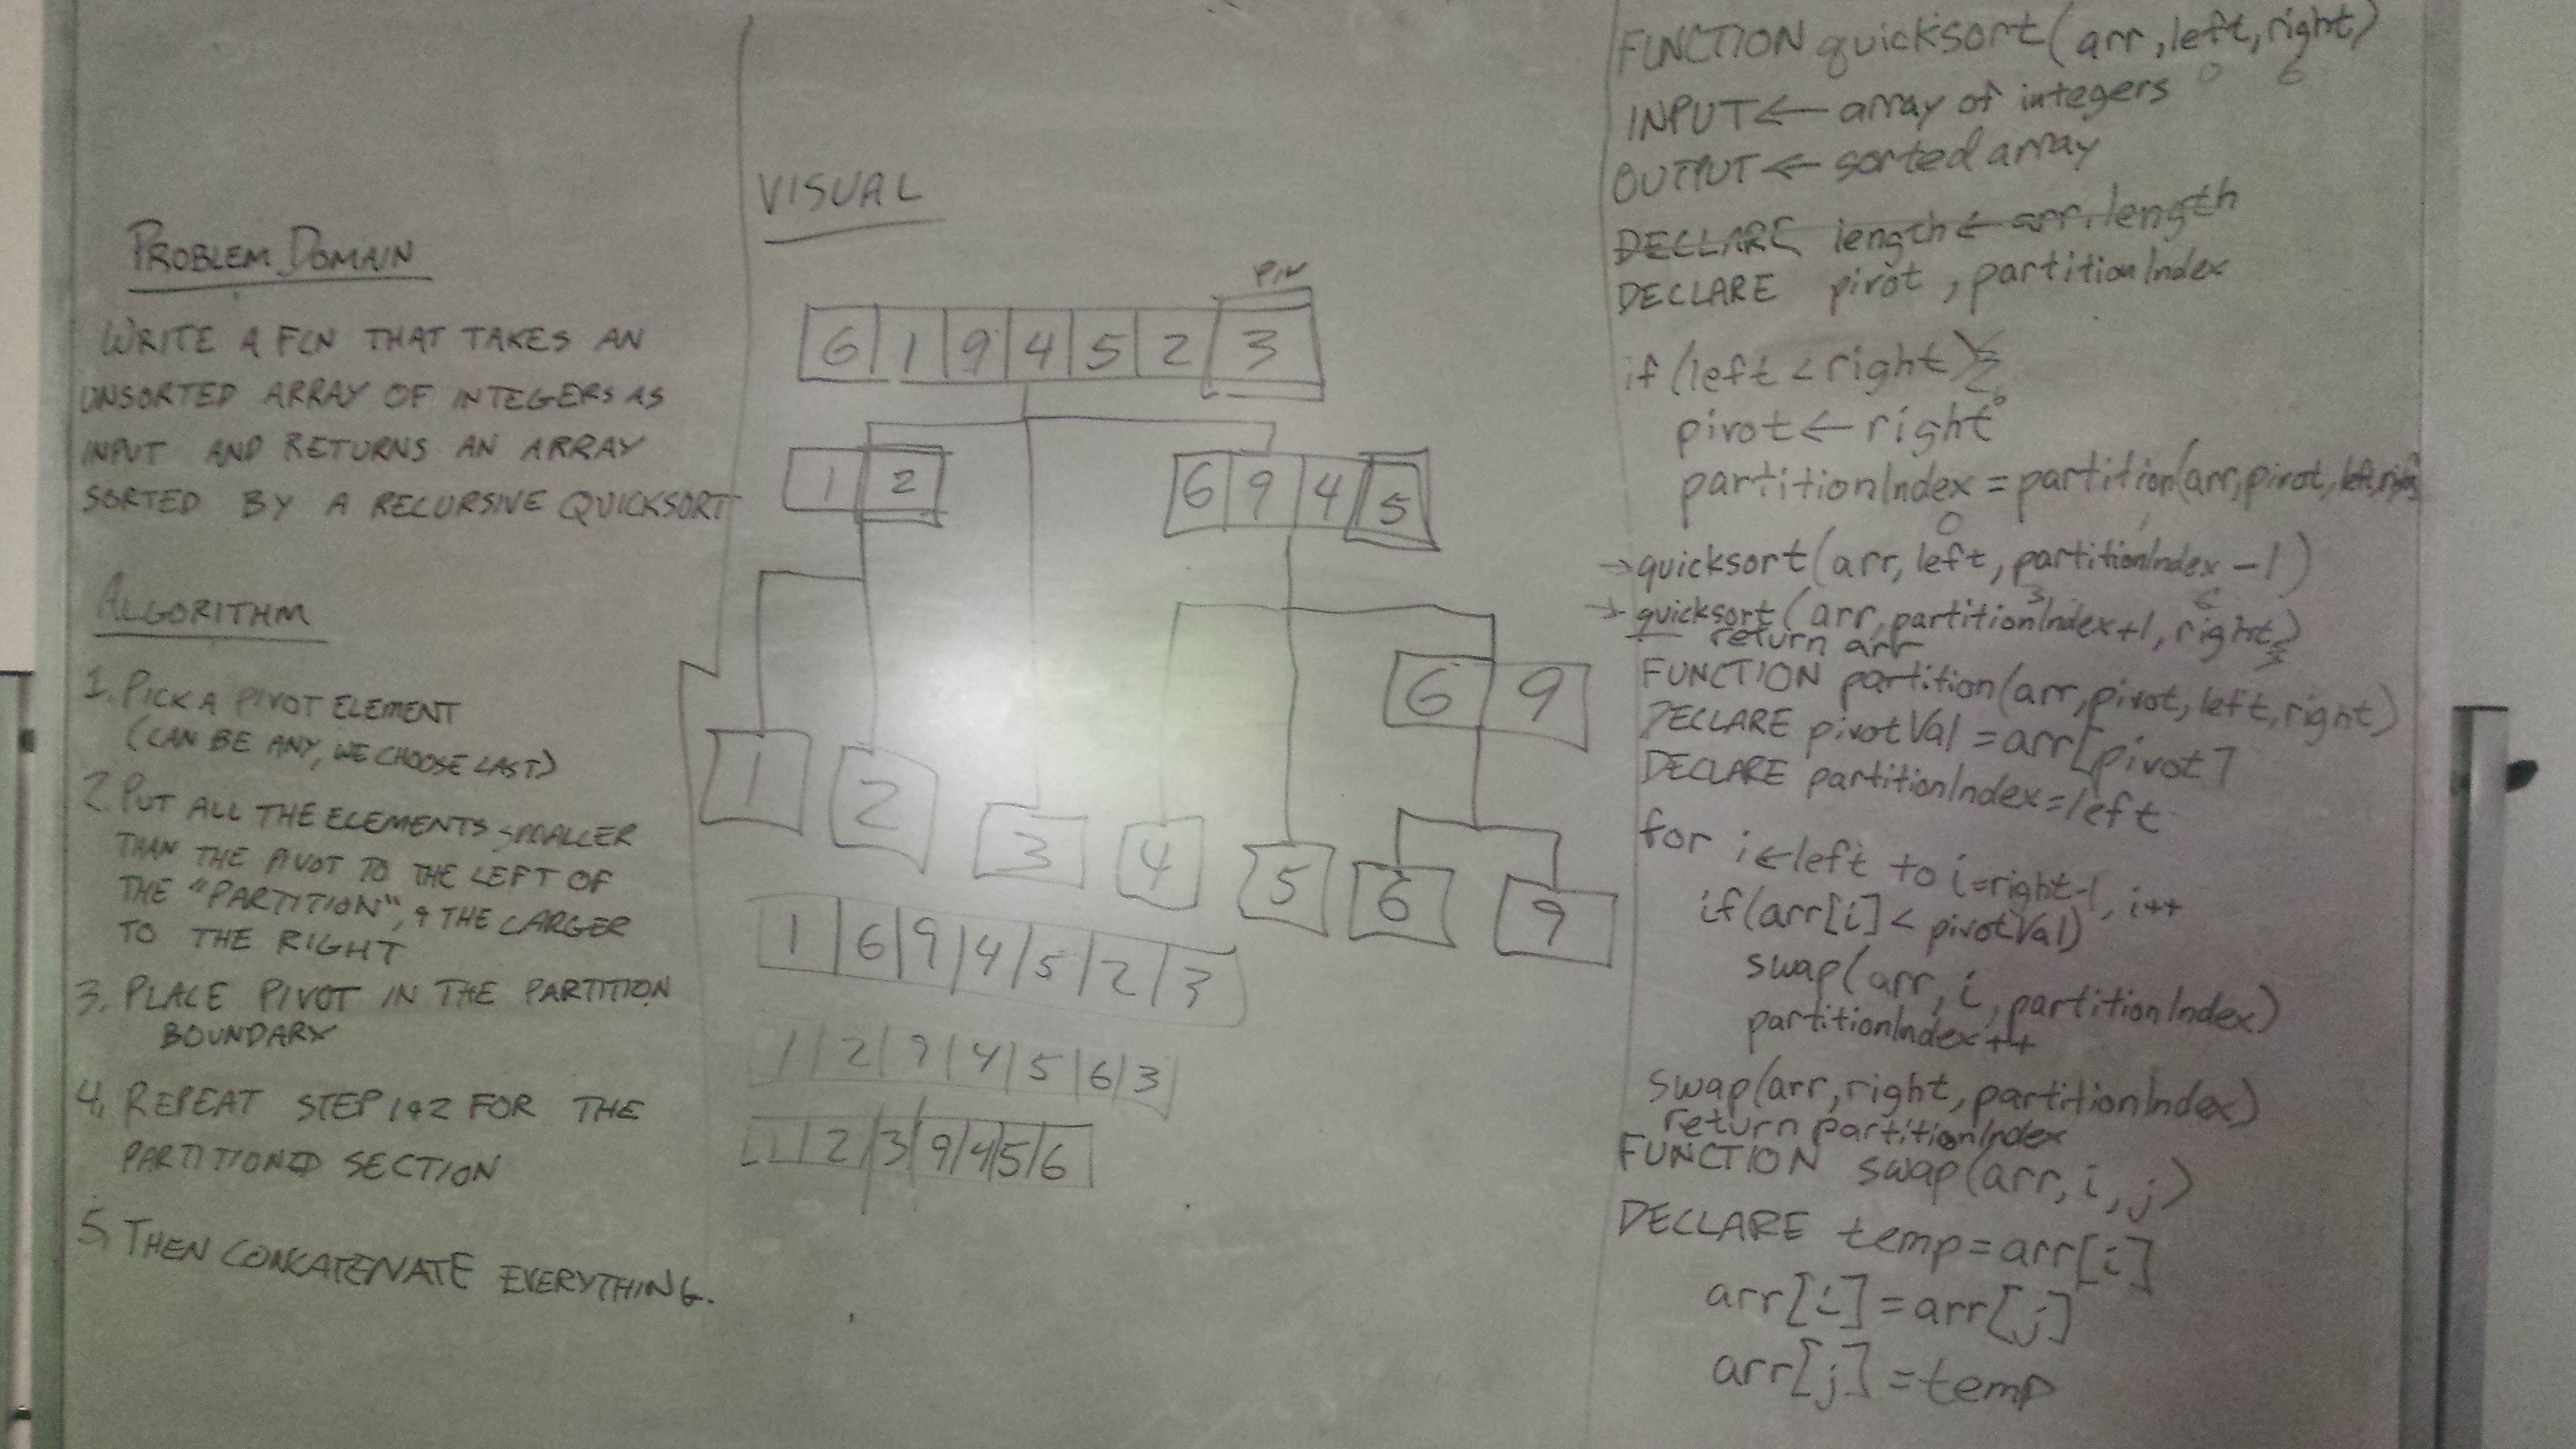 PROBLEM DOMAIN
WRITE A FCN THAT TAKES AN
UNSORTED ARRAY OF INTEGERS AS
INPUT AND RETURNS AN ARRAY
SORTED BY A RECURSIVE QUICKSORT
ALGORITHM
1. PICK A PIVOT ELEMENT
(CAN BE ANY, WE CHOOSE LAST)
2. PUT ALL THE ELEMENTS SMALLER
THAN THE PIVOT TO THE LEFT OF
THE "PARTITION", & THE LARGER
TO THE RIGHT
3. PLACE PIVOT IN THE PARTITION
BOUNDARY
4. REPEAT STEP 1&2 FOR THE
PARTITIONED SECTION
5. THEN CONCATENATE EVERYTHING.
VISUAL
PIV
6 1 9 4 5 2 3
1 2 6 9 4 5
6 9
1 2 3 4 5 6 9
1 6 9 4 5 2 3
1 2 9 4 5 6 3
1 2 3 9 4 5 6
FUNCTION quicksort(arr, left, right)
0 6
INPUT ← array of integers
OUTPUT ← sorted array
DECLARE length ← arr.length
DECLARE pivot, partitionIndex
if (left < right){
pivot ← right
partitionIndex = partition(arr, pivot, left, right)
0
→ quicksort(arr, left, partitionIndex -1)
3 6
→ quicksort(arr, partitionIndex+1, right)}
return arr
FUNCTION partition(arr, pivot, left, right)
DECLARE pivotVal = arr[pivot]
DECLARE partitionIndex = left
for i ← left to i=right-1, i++
if(arr[i] < pivotVal)
swap(arr, i, partitionIndex)
partitionIndex++
swap(arr, right, partitionIndex)
return partitionIndex
FUNCTION swap(arr, i, j)
DECLARE temp = arr[i]
arr[i] = arr[j]
arr[j] = temp